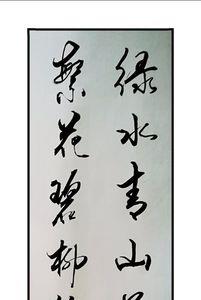 绿水青山
繁花碧柳